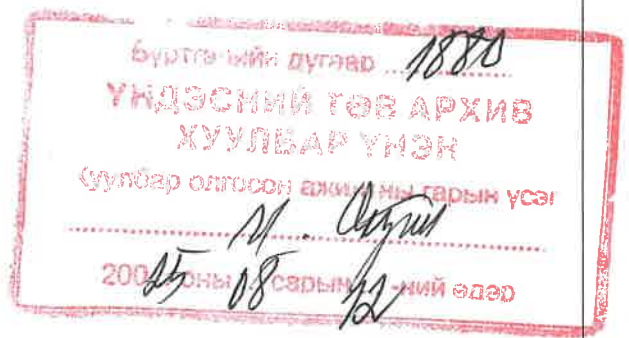 Бүртгэлийн дугаар ... 1880
ҮНДЭСНИЙ ТӨВ АРХИВ
ХУУЛБАР ҮНЭН
Хуулбар олгосон ажилтны гарын үсэг
200 25 оны 08 сарын 12 -ний өдөр